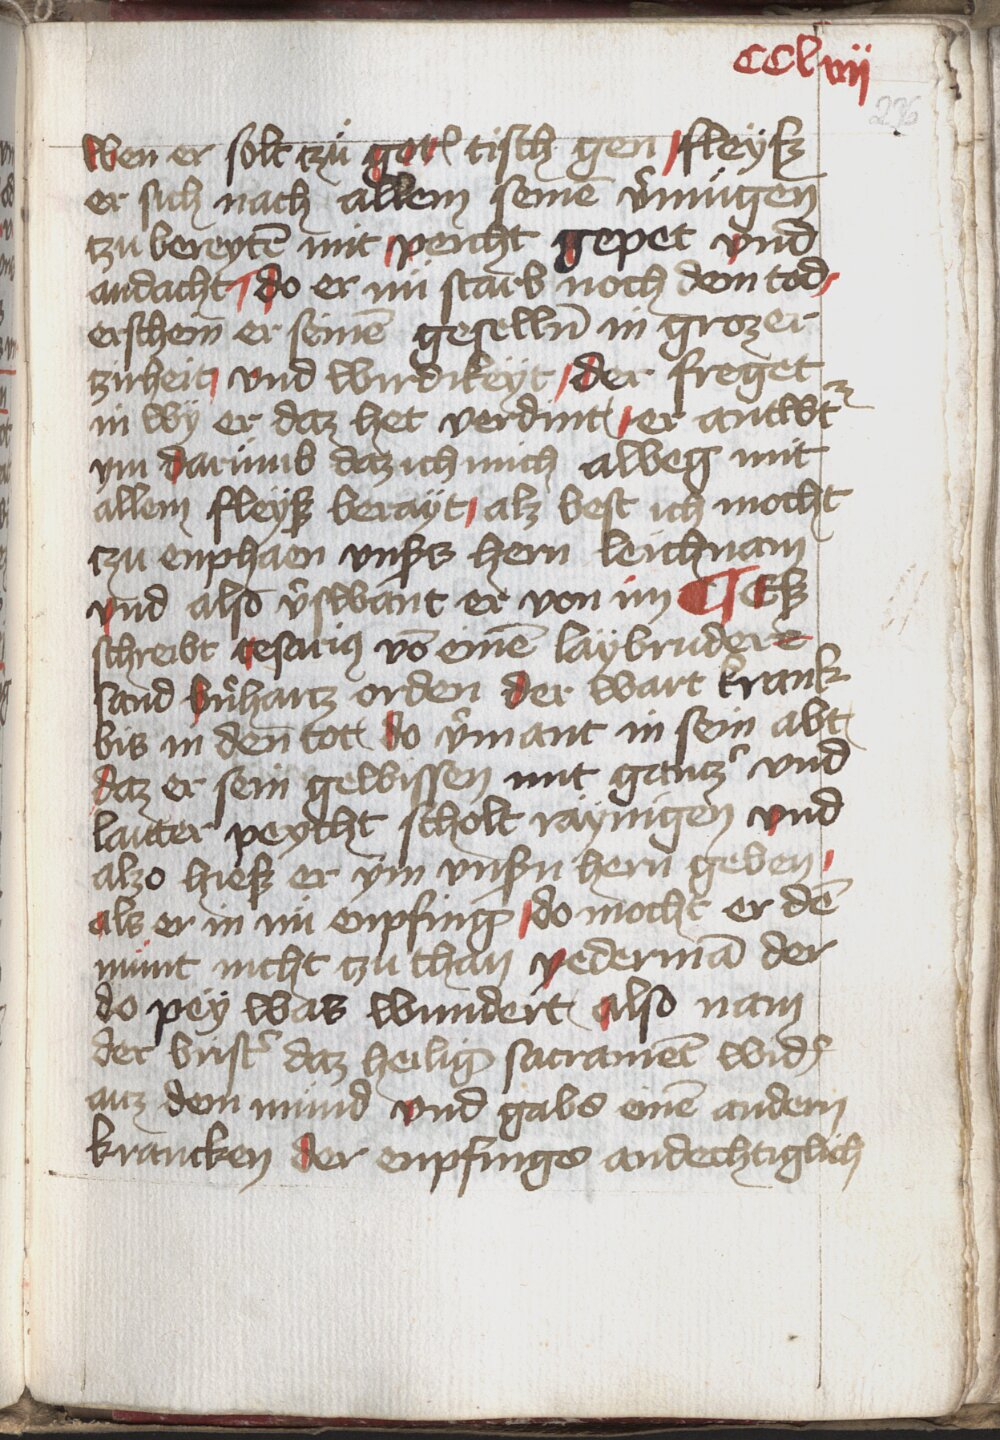 CClvij
236
Wen er solt czu gotz tisch gen / fleyß
er sich nach allem seinē v̄mugen
czu bereytē mit peicht gepet vnd
andacht ¶ do er nu starb noch dem tod /
erschein er seinē geselln̄ in grozer
zirheit / vnd wirdikeyt / der freget
in wy er daz het verdint / er antwᵗ
ym darumb daz ich mich alweg mit
allem fleyß berayt / alz best ich mocht
czu enphaen vnsʼs hern leichnam
vnd also v̄swant er von im ¶ Eß
schreibt cesariꝰ vō einē laybruder
sand bn̄hartz orden der wart krank
bis in den tot do v̄mant in sein abt
daz er sein gewissen mit gantzʼ vnd
lautter peycht scholt raynigen vnd
alzo hieß er ym vnßn hern geben /
als er in nu enpfing / do mocht er dē
munt nicht czu than yedermā der
do pey was wundert also nam
der pristʼ daz heilig sacramēt widʼ
auz dem mund vnd gabs einē andern
krancken der enpfings andechtiglich